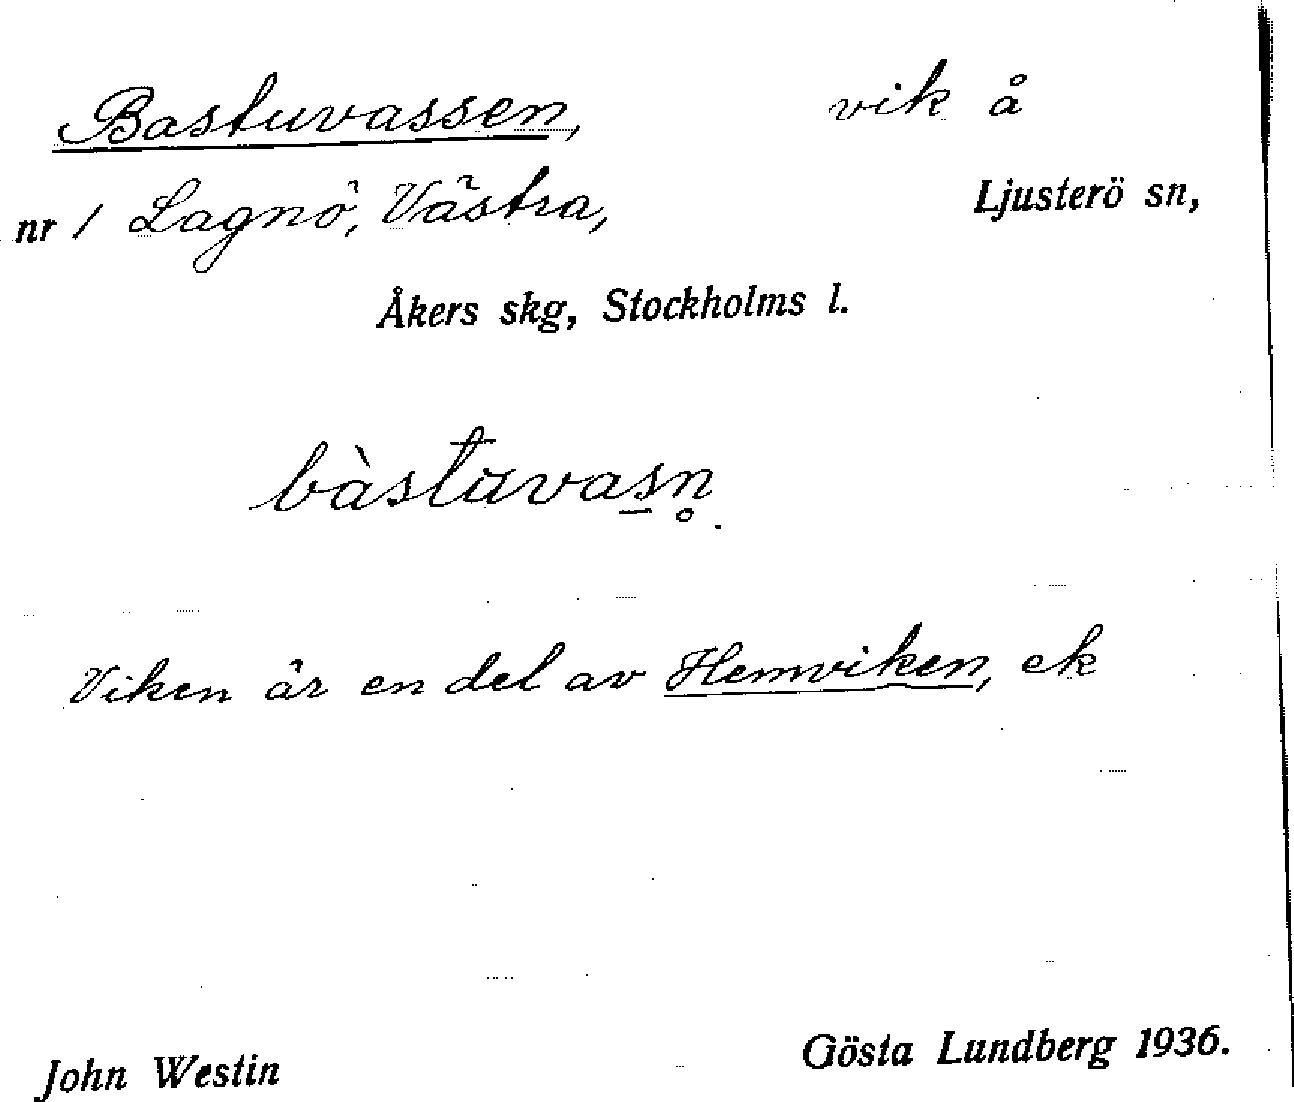 Bastuvassen, vik å
nr 1 Lagnö, Västra, Ljusterö sn,
Åkers skg, Stockholms l.
bàstuvasn̥
Viken är en del av Hemviken, ek
John Westin Gösta Lundberg 1936.